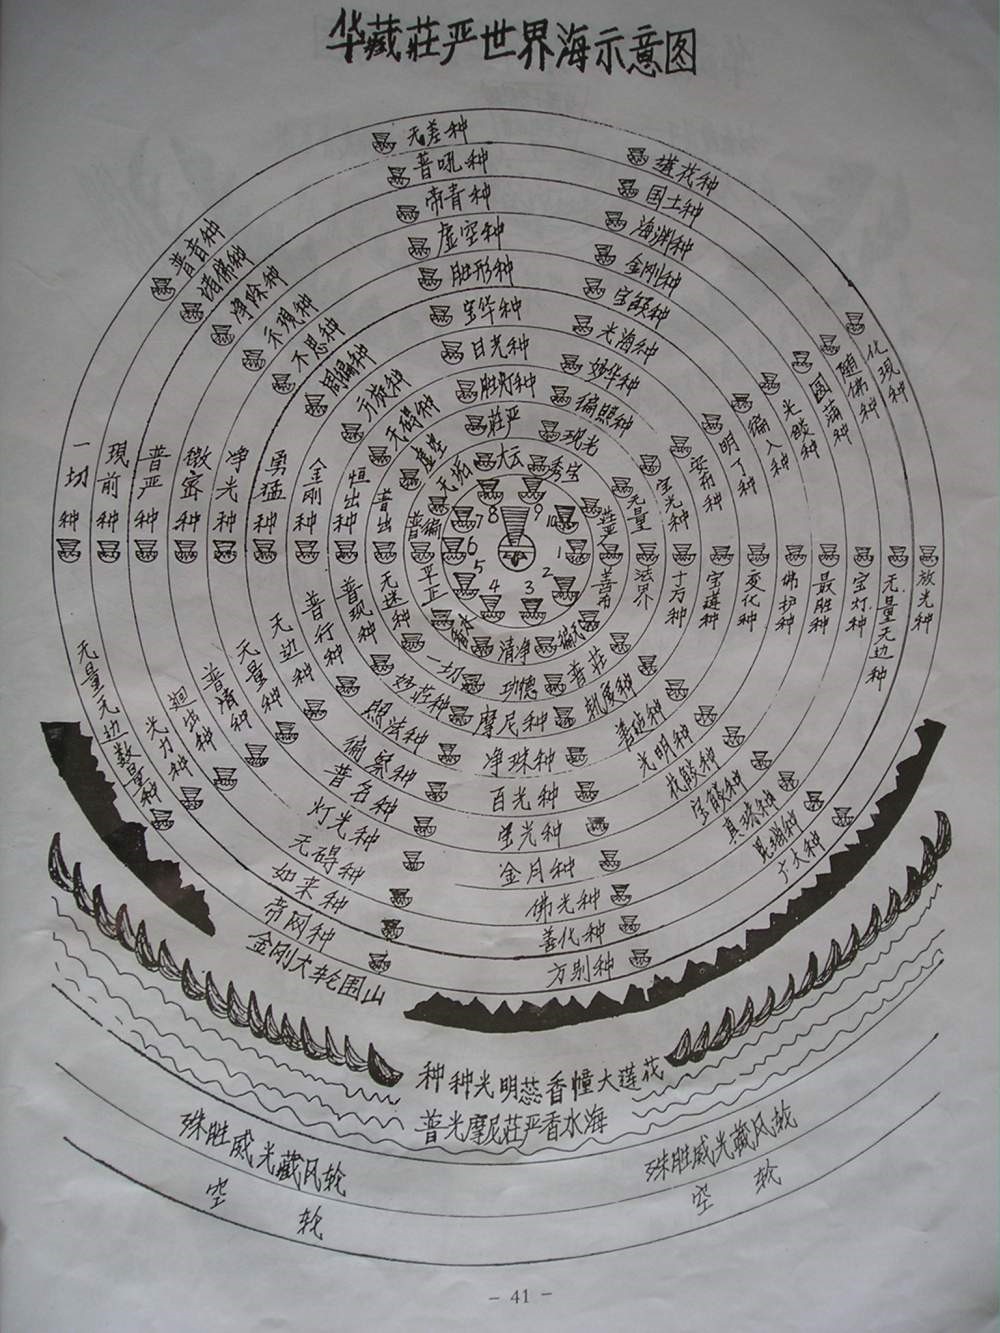 华藏莊严世界海示意图
无差种
普吼种
帝青种
虚空种
胜形种
宝华种
日光种
胜灯种
莊严
大云
国土种
海渊种
金刚种
宝燄种
光海种
妙华种
徧照种
普音种
诸佛种
净除种
示現种
不思种
周徧种
无碍种
虚空
无垢
化現种
随佛种
圆满种
光燄种
徧入种
明了种
宝光种
无量
一切种
現前种
普严种
微密种
净光种
勇猛种
金刚种
恒出种
普出
普徧
7
8
9
10
6
1
5
4
3
2
平正
法界
十方种
宝莲种
变化种
佛护种
最胜种
宝灯种
无量无边种
放光种
无迷种
普现种
普行种
无边种
无量种
普清种
迴出种
光力种
无量无边数量种
清净
一切
功德
普莊
妙莊种
摩尼种
照法种
净珠种
光明种
百光种
普名种
宝燄种
灯光种
宝光种
真珠种
无碍种
金月种
昆瑚种
如来种
佛光种
广大种
帝网种
善化种
方别种
金刚大轮围山
种种光明蕊香幢大莲花
普光摩尼莊严香水海
殊胜威光藏风轮
殊胜威光藏风轮
空轮
空轮
- 41 -